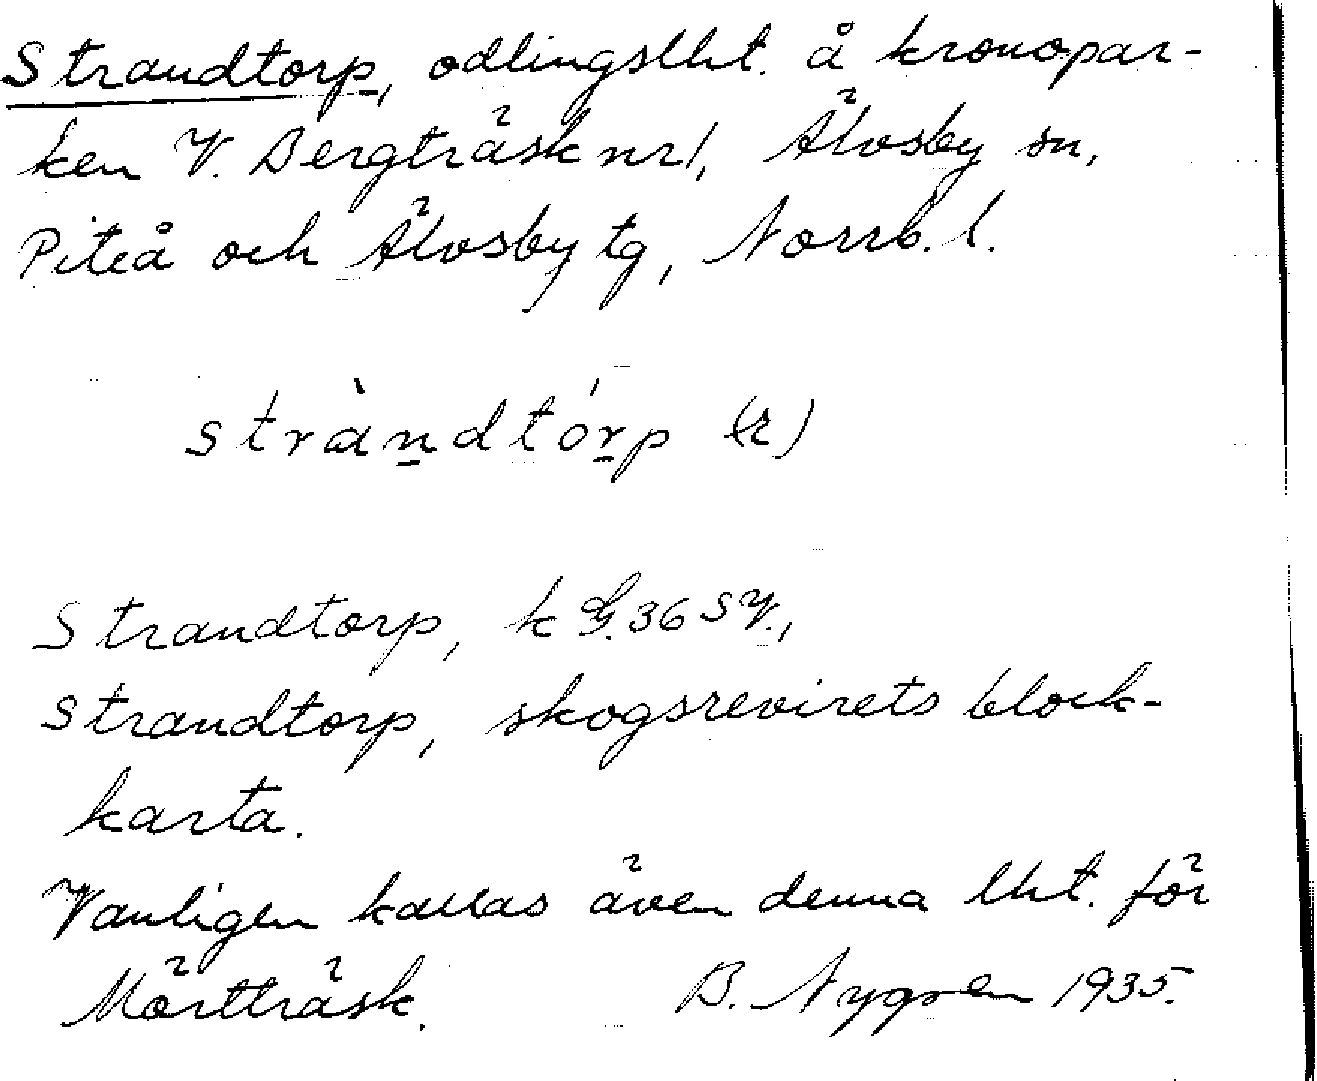 Strandtorp, odlingslht. å kronopar-
ken V. Bergträsk nr 1, Älvsby sn,
Piteå och Älvsby tg, Norrb. l.
stràndtórp (r)
Strandtorp, k G. 36 SV.,
Strandtorp, skogsrevirets block-
karta.
Vanligen kallas även denna lht. för
Mörtträsk. B. Nygren 1935.